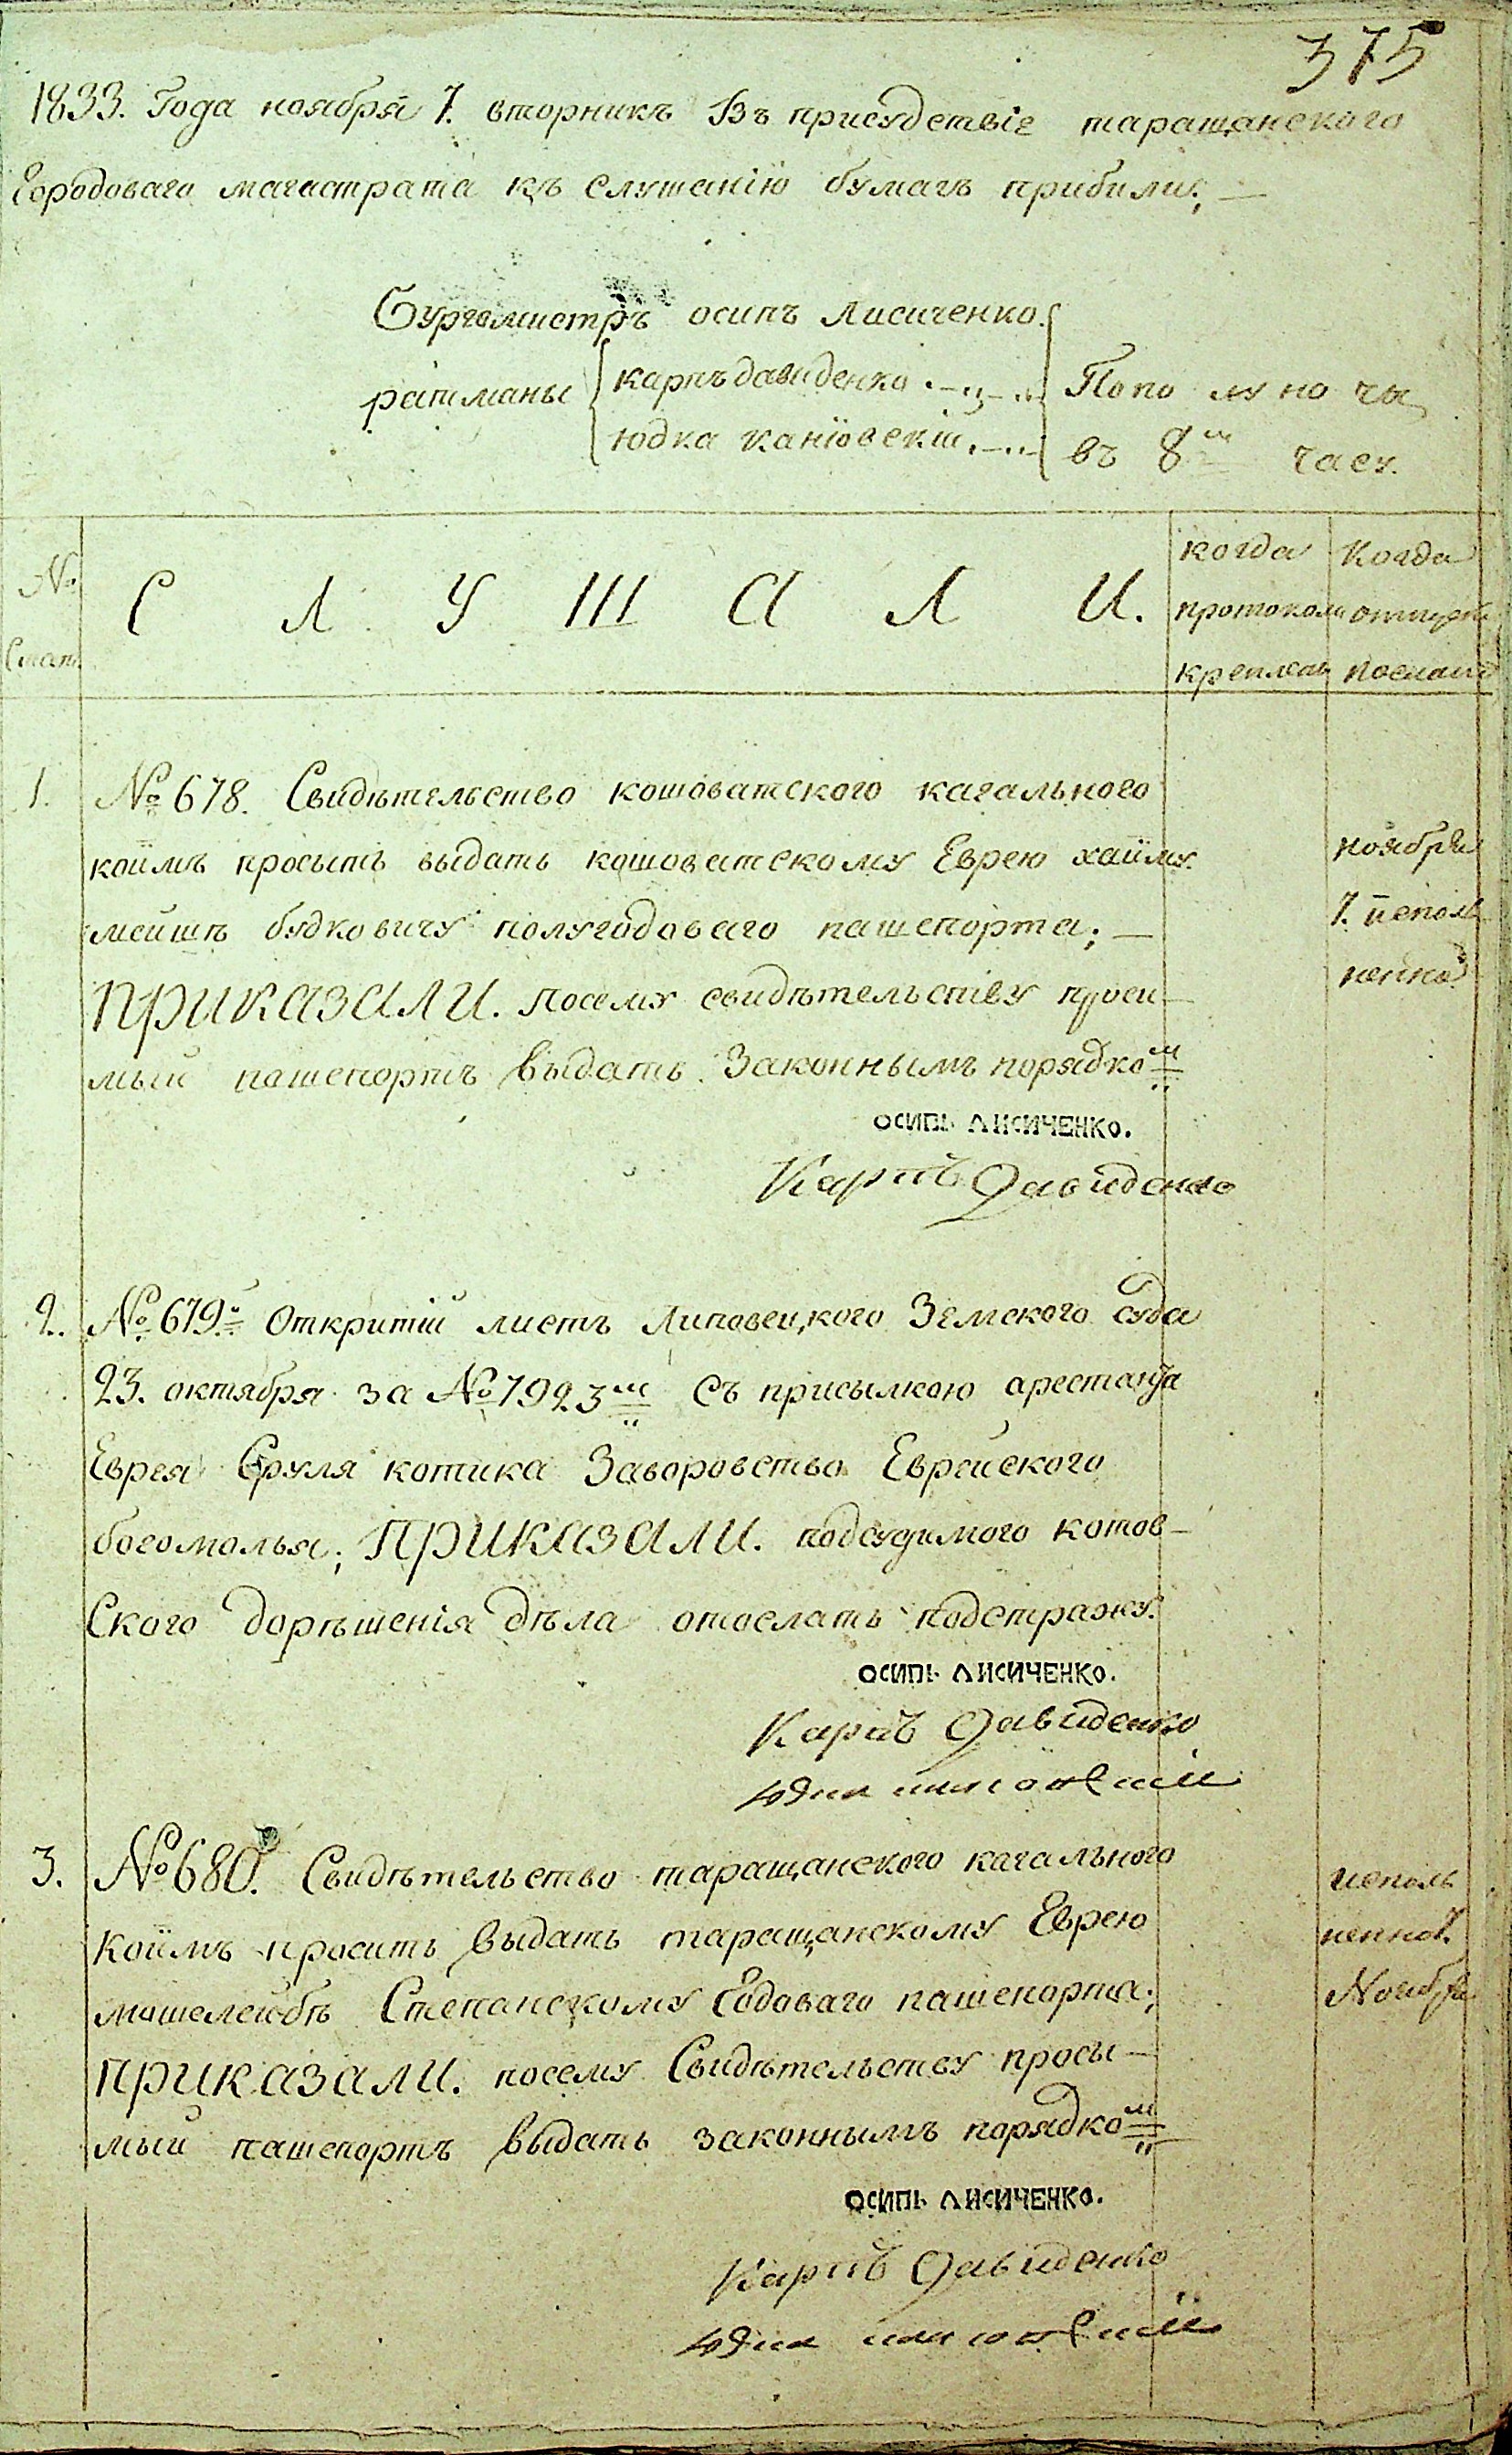 375
1833. Года ноября 7. вторникъ Въ присудствіе таращанского
Городоваго магастрата къ слушанію бумагъ прибили; —
Бургомистръ осипъ Лисиченко.
ратманы
карпъ давиденко
юдка канїовскій
По полу но чи
въ 8м часу.
№
Стат.
С Л У Ш А Л И.
когда протоколъ крепленъ
Когда отпускъ посланъ
1. №678. Свидѣтельство кошоватского кагального
коимъ просытъ выдать кошоватскому Еврею хаиму
меишѣ будковичу полугодоваго пашепорта; —
ПРИКАЗАЛИ. посему свидѣтельству проси—
мый пашепортъ выдать Законнымъ порядком
ноября
7. исполъ
ненно
ОСИПЬ ЛИСИЧЕНКО.
Карпъ Давиденко
2. №679й Откритій листъ Липовецкого Земского суда
23. октября за №7923м Съ присылкою арестанта
Еврея Сруля котика Заворовство Еврейского
богомолья; ПРИКАЗАЛИ. подсудимого котов—
Ского дорѣшенія дѣла отослать подстражу.
ОСИПЬ ЛИСИЧЕНКО.
Карпъ Давиденко
3. №680. Свидѣтельство таращанского кагального
Коимъ просить выдать таращанскому Еврею
мошелейбѣ Степанскому Годоваго пашепорта;
ПРИКАЗАЛИ. посему Свидѣтельству просы—
мый пашепортъ выдать законнымъ порядком
исполъ
ненно 7.
Ноября
ОСИПЬ ЛИСИЧЕНКО.
Карпъ Давиденко